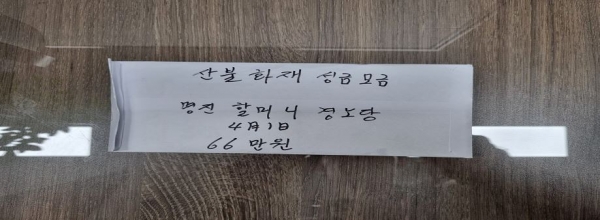 산불 화재 성금 모금
명진 할머니 경노당
4月1日
66 만원